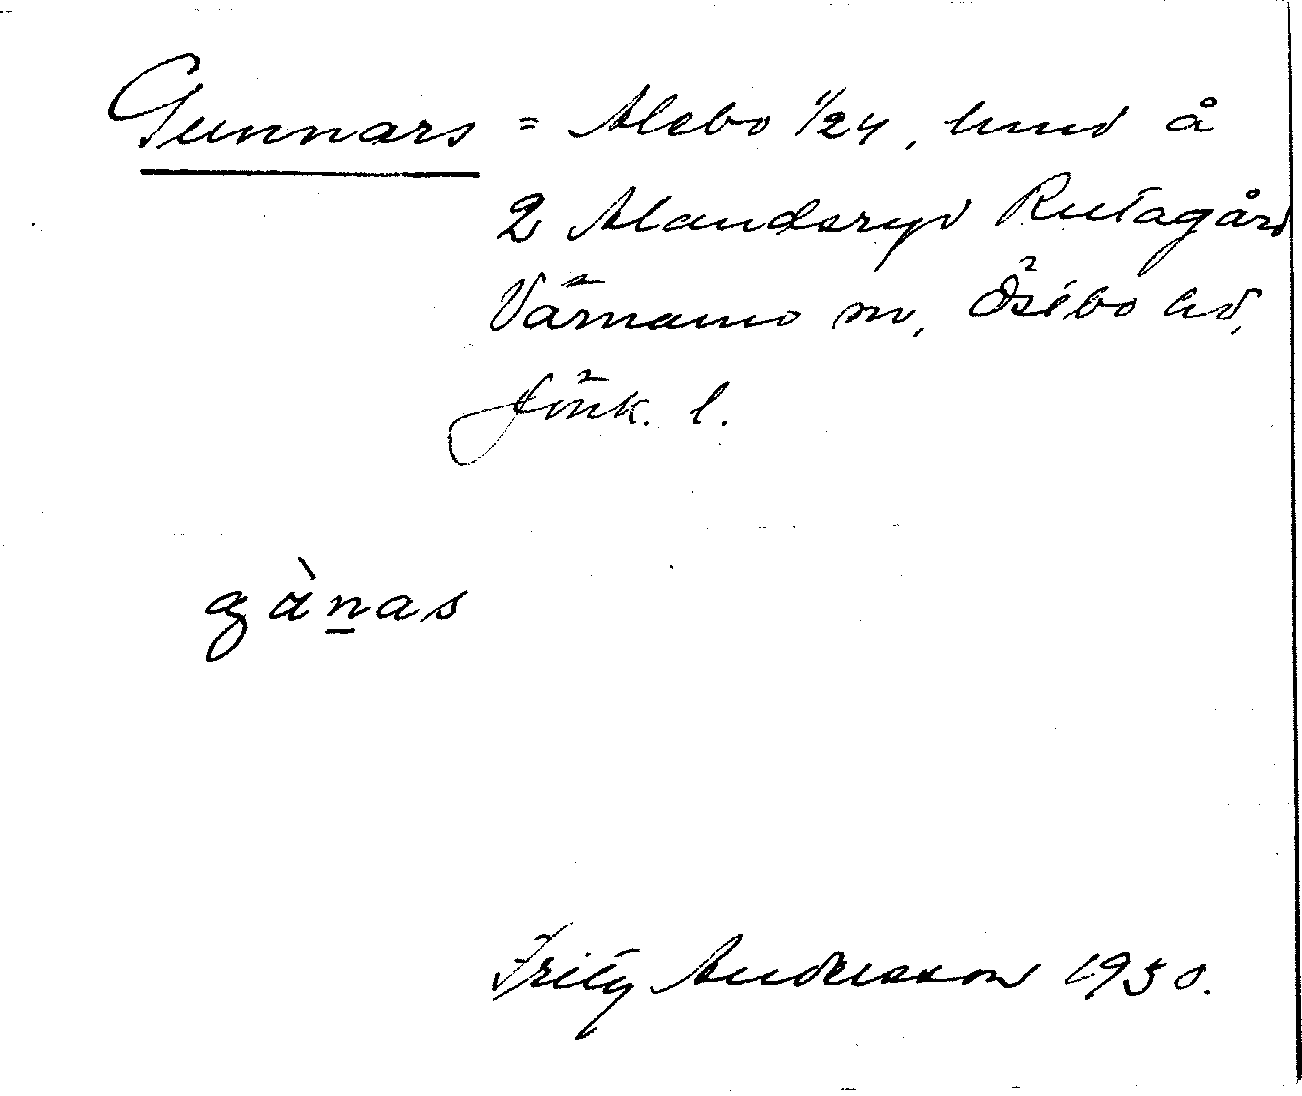 Gunnars = Alebo 1/24, lund å
2 Alandsryd Rutagård
Värnamo sn, Östbo hd,
Jönk. l.
gànas
Fritz Andersson 1930.